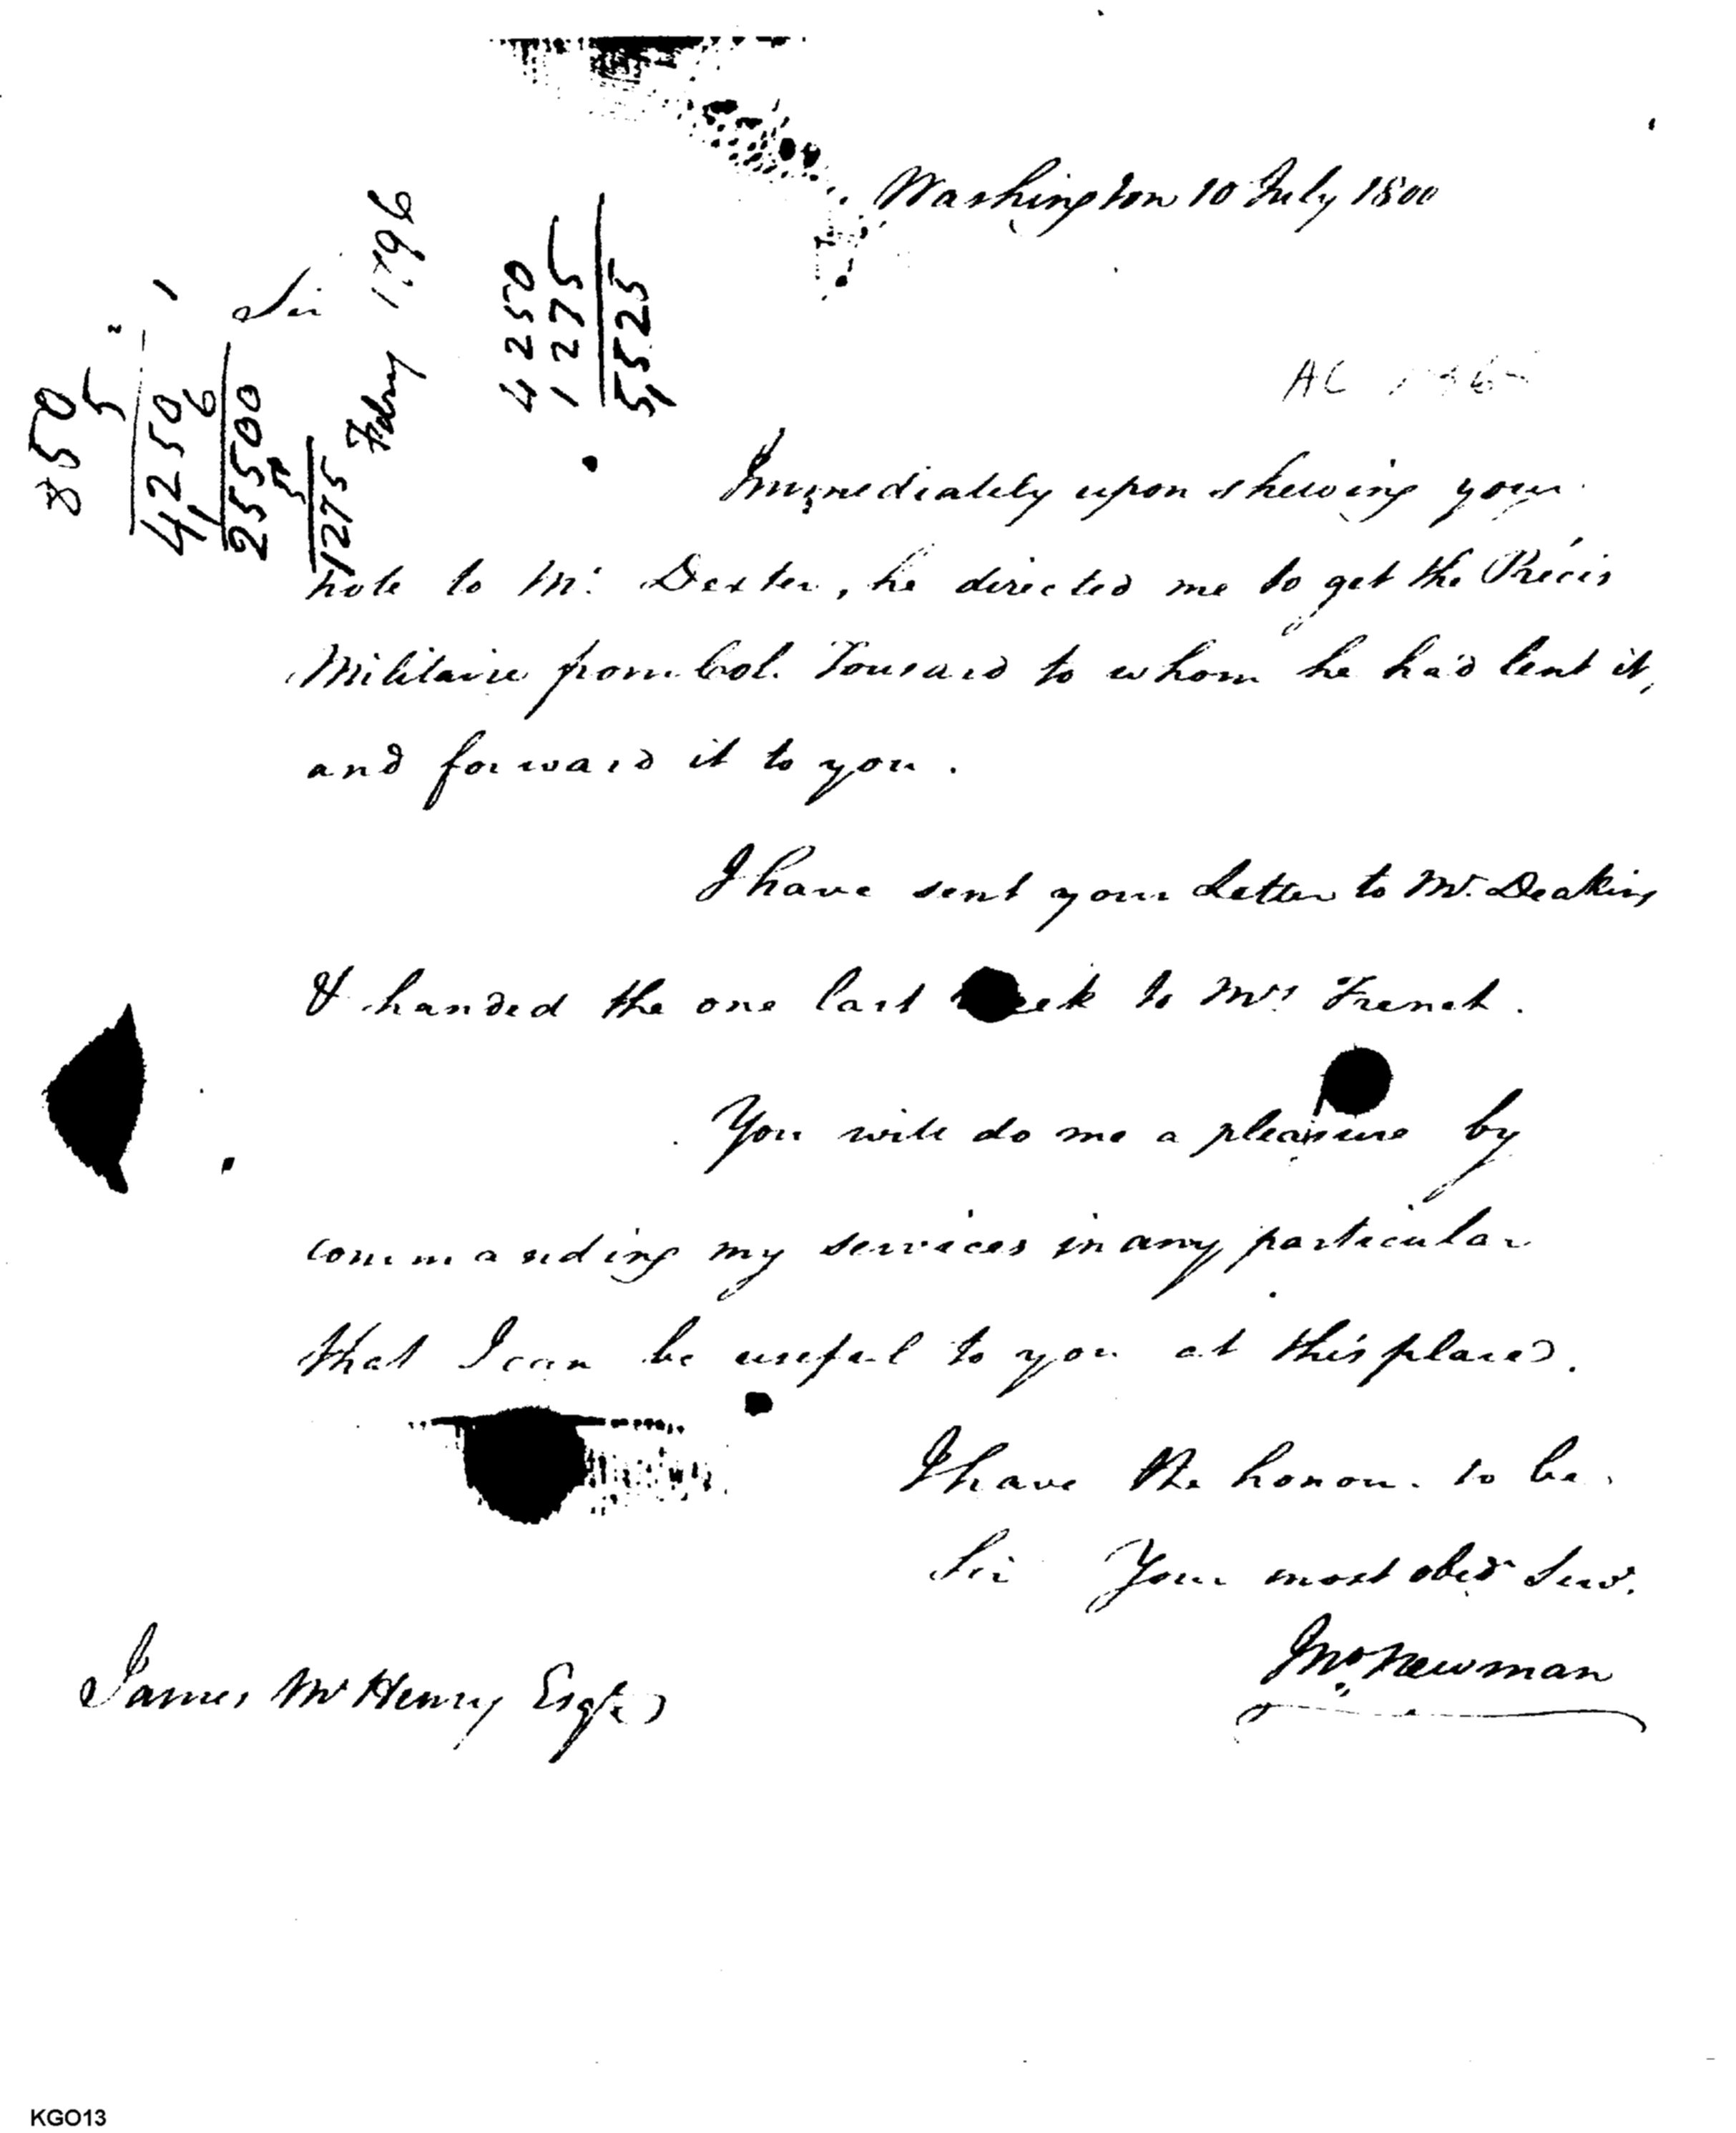 Washington 10 July 1800
Sir
Feby 1796
850
5
4250
6
25500
5
1275
4250
1275
5525
AC
Immediately upon shewing your
note to Mr. Dexter, he directed me to get the Précis
Militaire from Col. Tousard to whom he had lent it,
and forward it to you.
I have sent your Letter to Mr. Deakins
& handed the one last week to Mrs French.
You will do me a pleasure by
commanding my services in any particular
that I can be useful to you at this place.
I have the honour to be
Sir Your most obed Serv.
Jno. Newman
James McHenry Esqr.
KGO13